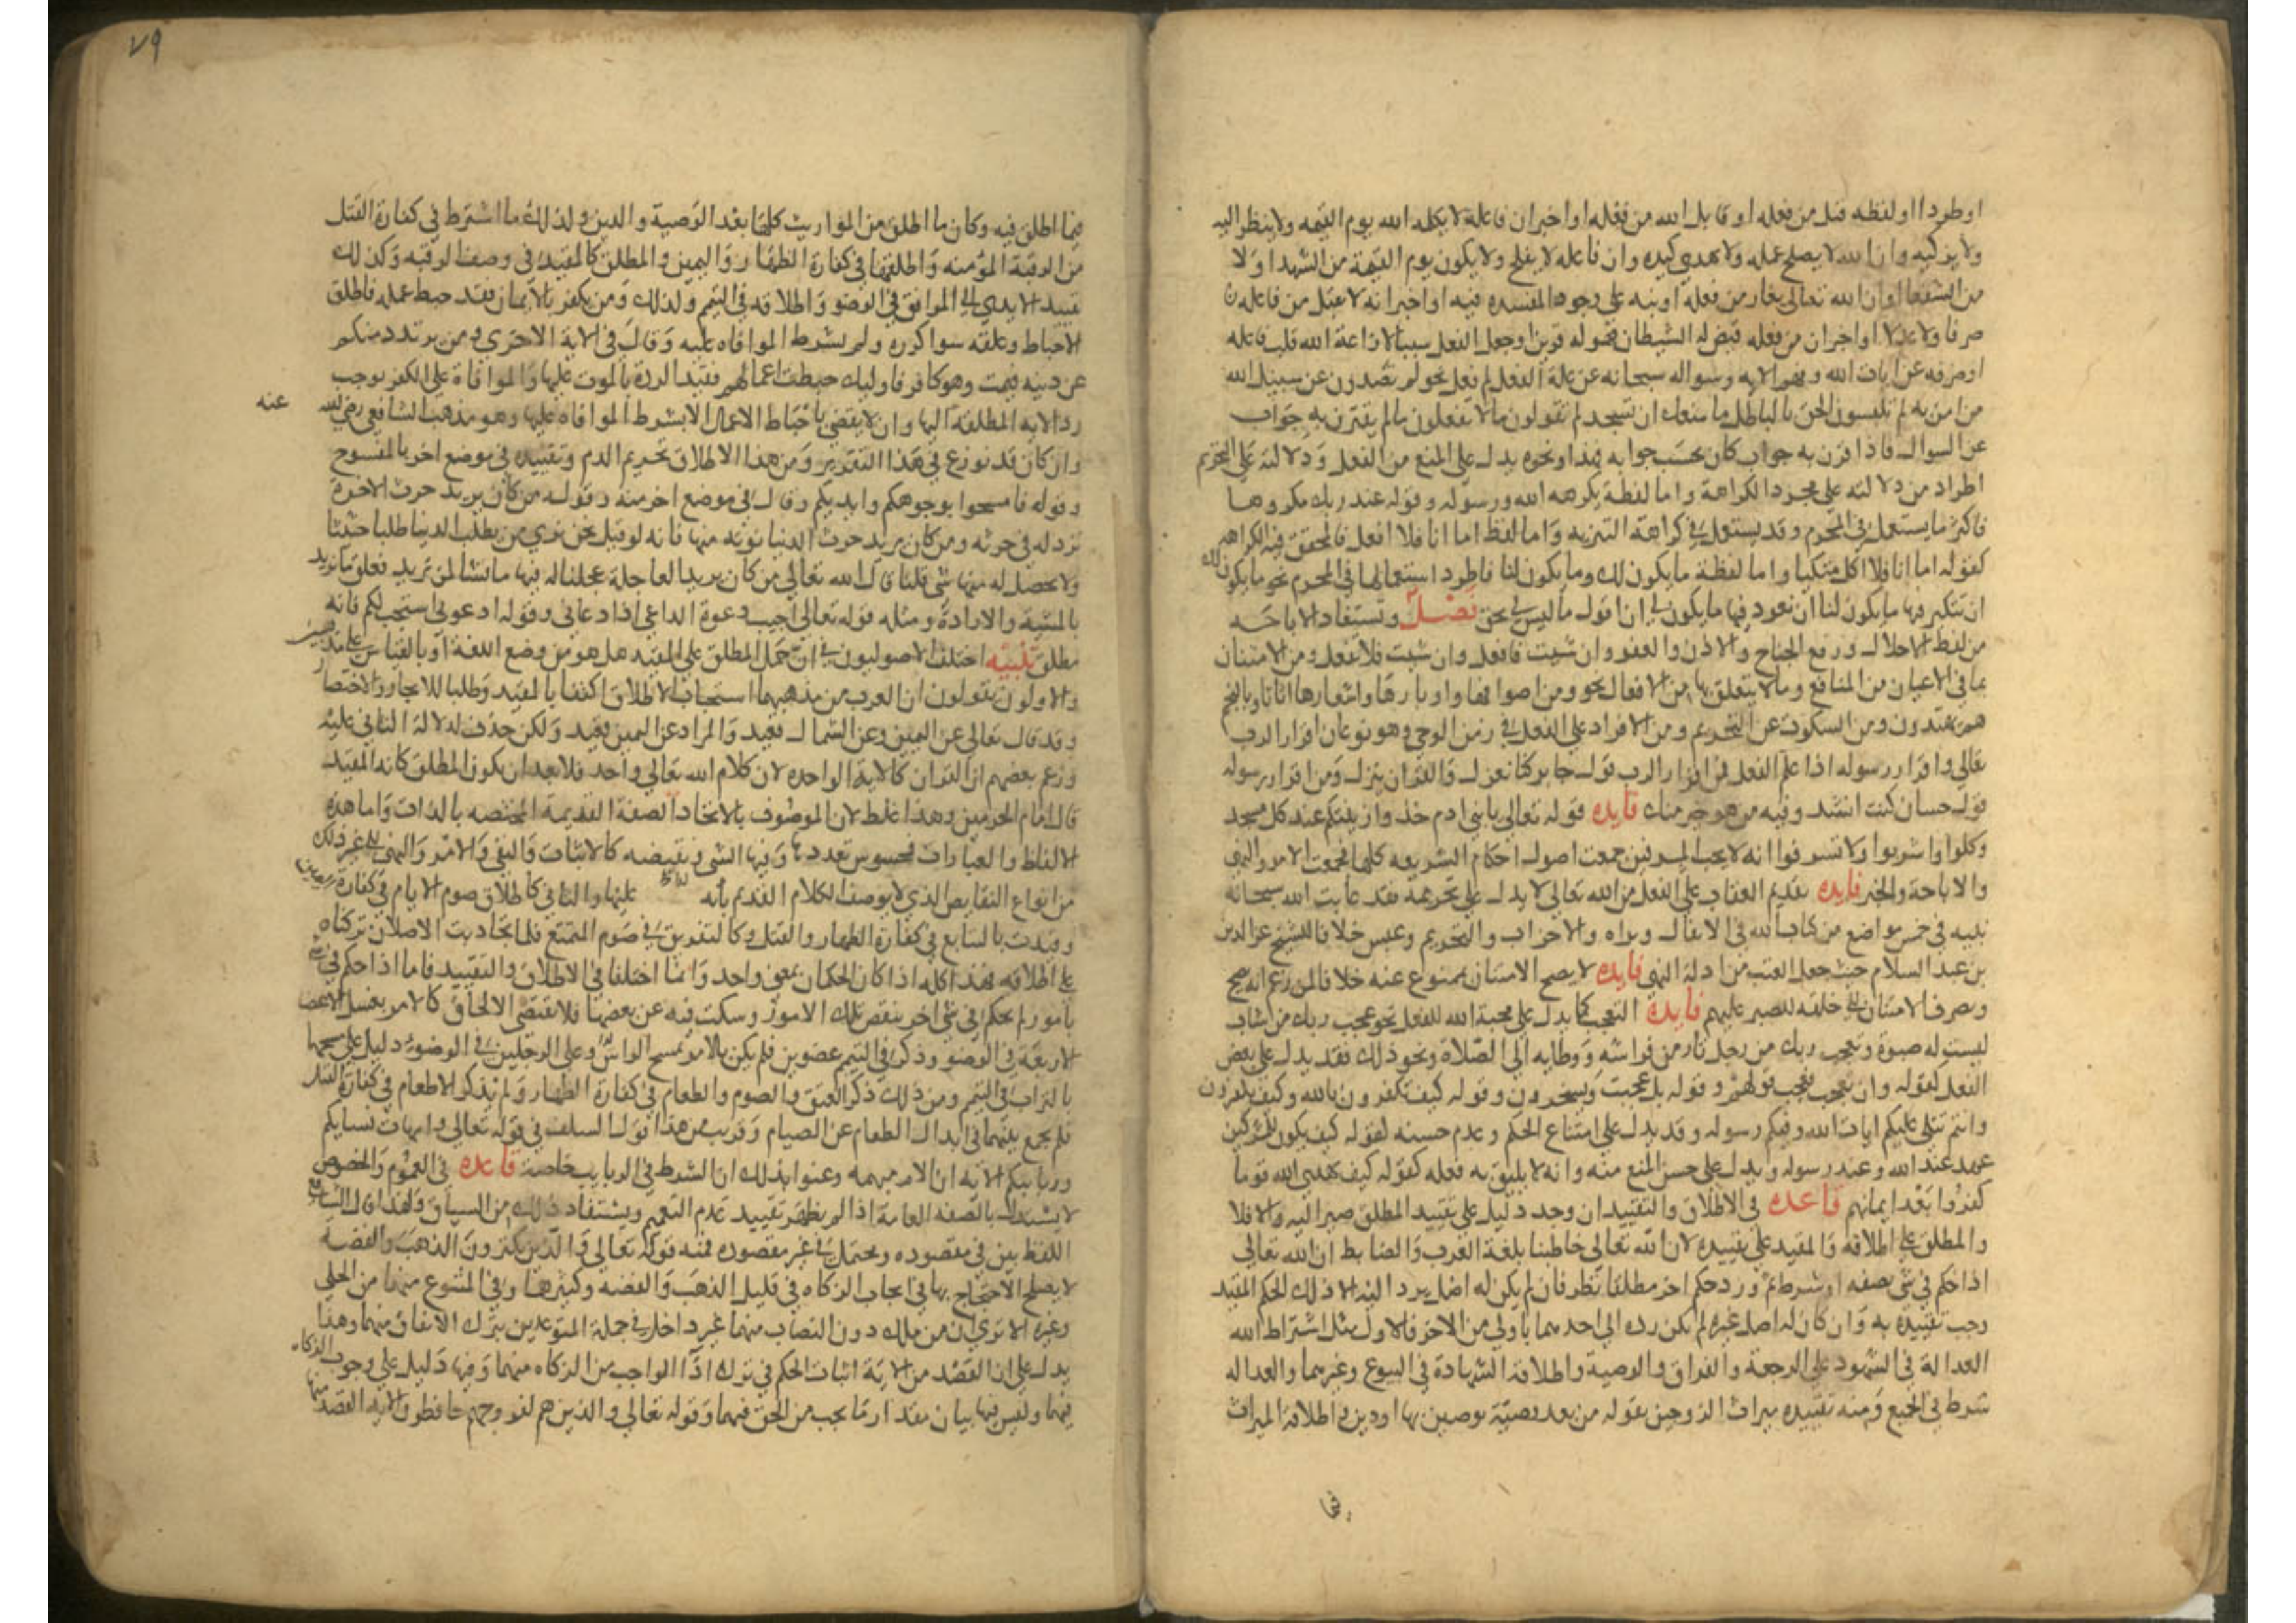 او طردا او لفظه قتل من فعله او قاتل الله من فعله او اخبر ان فاعله لا يكلمه الله يوم القيمه ولا ينظر اليه
ولا يزكيه وان الله لا يصلح عمله ولا يهدي كيده وان فاعله لا يفلح ولا يكون يوم القيمة من الشهدا ولا
من الشفعا او ان الله تعالى يغار من فعله او نبه على وجود المفسده فيه او اخبر انه لا يقبل من فاعله
صرفا ولا عدلا او اخبر ان من فعله قيض له الشيطان فهو له قرين او جعل الفعل سببا لازاغة الله قلب فاعله
او صرفه عن ايات الله وفهم الايه وسواله سبحانه عن علة الفعل لم فعل نحو لم تصدون عن سبيل الله
من امن به لم تلبسون الحق بالباطل ما منعك ان تسجد لم تقولون ما لا تفعلون ما لم يقترن به جواب
عن السوال فاذا قرن به جواب كان بحسب جوابه فهذا ونحوه يدل على المنع من الفعل ودلالته على التحريم
اطراد من دلالته على مجرد الكراهة واما لفظة يكرهه الله ورسوله وقوله عند ربك مكروها
فاكثر ما يستعمل في المحرم وقد يستعمل في كراهة التنزيه واما لفظ اما انا فلا افعل فالمحقق فيه الكراهه
كقوله اما انا فلا اكل متكيا واما لفظة ما يكون لك وما يكون لنا فاطرد استعمالها في المحرم نحو ما يكون لك
ان تتكبر فيها ما يكون لنا ان نعود فيها ما يكون لي ان اقول ما ليس لي بحق فصل وتستفاد الاباحه
من لفظ الاحلال ورفع الجناح والاذن والعفو وان شيت فافعل وان شيت فلا تفعل ومن الامتنان
بما في الاعيان من المنافع وما يتعلق بها من الافعال نحو ومن اصوافها واوبارها واشعارها اثاثا وبالنجم
هم يهتدون ومن السكوت عن التحريم ومن الاقرار على الفعل في زمن الوحي وهو نوعان اقرار الرب
تعالى واقرار رسوله اذا علم الفعل فمن اقرار الرب قول جابر كنا نعزل والقران ينزل ومن اقرار رسوله
قول حسان كنت انشد وفيه من هو خير منك فايده قوله تعالى يا بني ادم خذوا زينتكم عند كل مسجد
وكلوا واشربوا ولا تسرفوا انه لا يحب المسرفين جمعت اصول احكام الشريعه كلها فجمعت الامر والنهي
والاباحة والخبر فايده تقديم العتاب على الفعل من الله تعالى لا يدل على تحريمه فقد عاتب الله سبحانه
نبيه في خمس مواضع من كتاب الله في الانفال وبراه والاحزاب والتحريم وعبس خلافا للشيخ عز الدين
بن عبد السلام حيث جعل العتب من ادلة النهي فايده لا يصح الامتنان بممنوع عنه خلافا لمن زعم انه يصح
ويصرف الامتنان الى خلقه للصبر عليهم فايدة التعجب كما يدل على محبة الله للفعل نحو عجب ربك من شاب
ليست له صبوة وتعجب ربك من رجل ثار من فراشه ووطايه الى الصلاة ونحو ذلك فقد يدل على بغض
الفعل كقوله وان تعجب فعجب قولهم وقوله بل عجبت ويسخرون وقوله كيف تكفرون بالله وكيف تكفرون
وانتم تتلى عليكم ايات الله وفيكم رسوله وقد يدل على امتناع الحكم وعدم حسنه كقوله كيف يكون للمشركين
عهد عند الله وعند رسوله ويدل على حسن المنع منه وانه لا يليق به فعله كقوله كيف يهدي الله قوما
كفروا بعد ايمانهم قاعده في الاطلاق والتقييد ان وجد دليل على تقييد المطلق صير اليه والا فلا
والمطلق على اطلاقه والمقيد على تقييده لان الله تعالى خاطبنا بلغة العرب والضابط ان الله تعالى
اذا حكم في شي بصفه او شرط ثم ورد حكم اخر مطلقا نظر فان لم يكن له اصل يرد اليه الا ذلك الحكم المقيد
وجب تقييده به وان كان له اصل غيره لم يكن رده الى احدهما باولى من الاخر فالاول مثل اشتراط الله
العدالة في الشهود على الرجعة والفراق والوصية واطلاقه الشهادة في البيوع وغيرهما والعداله
شرط في الجميع ومنه تقييده ميراث الزوجين بقوله من بعد وصيّة يوصين بها او دين واطلاقه الميراث
فيما
٧٩
فيما اطلق فيه وكان ما اطلق من المواريث كلها بعد الوصية والدين ولذلك ما اشترط في كفارة القتل
من الرقبة المؤمنه واطلقها في كفارة الظهار واليمين والمطلق كالمقيد في وصف الرقبه وكذلك
تقييد الايدي الى المرافق في الوضو واطلاقه في التيمم ولذلك ومن يكفر بالايمان فقد حبط عمله فاطلق
الاحباط وعلقه سوا كرره ولم يشرط الموافاه عليه وقال في الاية الاخرى ومن يرتدد منكم
عن دينه فيمت وهو كافر فاوليك حبطت اعمالهم فقيد الردة بالموت عليها والموافاة على الكفر يوجب
رد الايه المطلقه اليها وان لا يقضى باحباط الاعمال الا بشرط الموافاه عليها وهو مذهب الشافعي رضي الله عنه
وان كان قد نوزع في هذا التقرير ومن هذا الاطلاق تحريم الدم وتقييده في موضع اخر بالمسفوح
وقوله فامسحوا بوجوهكم وايديكم وقال في موضع اخر منه وقوله من كان يريد حرث الاخرة
نزد له في حرثه ومن كان يريد حرث الدنيا نوته منها فانه لو قيل نحن نرى من يطلب الدنيا طلبا حثيثا
ولا يحصل له منها شي قلنا قال الله تعالى من كان يريد العاجلة عجلنا له فيها ما نشا لمن نريد فعلق ما نريد
بالمشية والارادة ومثله قوله تعالى اجيب دعوة الداعي اذا دعاني وقوله ادعوني استجب لكم فانه
مطلق تنبيه اختلف الاصوليون في ان حمل المطلق على المقيد هل هو من وضع اللغة او بالقياس على مذهبين
والاولون يقولون ان العرب من مذهبها استحباب الاطلاق اكتفا بالمقيد وطلبا للايجاز والاختصار
وقد قال تعالى عن اليمين وعن الشمال قعيد والمراد عن اليمين قعيد ولكن حذف لدلالة الثاني عليه
وزعم بعضهم ان القران كالاية الواحده لان كلام الله تعالى واحد فلا بعد ان يكون المطلق كانه المقيد
قال امام الحرمين وهذا غلط لان الموصوف بالاتحاد الصفة القديمة المختصه بالذات واما هذه
الالفاظ والعبارات فمحسوس تعددها وفيها الشي ونقيضه كالاثبات والنفي والامر والنهي الى غير ذلك
من انواع النقايض الذي لا يوصف الكلام القديم بانه عليها والثاني كاطلاق صوم الايام في كفارة اليمين
وقيدت بالتتابع في كفارة الظهار والقتل وكالتفريق في صوم التمتع فلما تجاذبت الاصلان تركناه
على اطلاقه هذا كله اذا كان الحكمان بمعنى واحد وانما اختلفا في الاطلاق والتقييد فاما اذا حكم في شي
بامور لم يحكم في شي اخر ينقض تلك الامور وسكت فيه عن بعضها فلا يقتضي الالحاق كالامر بغسل الاعضا
الاربعة في الوضو وذكر في التيمم عضوين فلم يكن بالامر بمسح الراس وعلى الرجلين في الوضو دليل على مسحهما
بالتراب في التيمم ومن ذلك ذكر العتق والصوم والطعام في كفارة الظهار ولم يذكر الاطعام في كفارة القتل
فلم يجمع بينهما في ابدال الطعام عن الصيام وقريب من هذا قول السلف في قوله تعالى وامهات نسايكم
وربايبكم الايه ان الام مبهمه وعنوا بذلك ان الشرط في الربايب خاصة قاعده في العموم والخصوص
لا يستدل بالصفه العامة اذا لم يظهر تقييد عدم التعميم ويستفاد ذلك من السياق ولهذا قال الشافعي
اللفظ بين في مقصوده ويحتمل في غير مقصوده فمنه قوله تعالى والذين يكنزون الذهب والفضه
لا يصلح الاحتجاج بها في ايجاب الزكاه في قليل الذهب والفضه وكثيرها وفي المتنوع منهما من الحلي
وغيره الا ترى ان من ملك دون النصاب منهما غير داخل في جملة المتوعدين بترك الانفاق منهما وهذا
يدل على ان القصد من الاية اثبات الحكم في ترك اذا الواجب من الزكاه منهما وفيها دليل على وجوب الزكاه
فيهما وليس فيها بيان مقدار ما يجب من الحق فيهما وقوله تعالى والذين هم لفروجهم حافظون الايه القصد منها